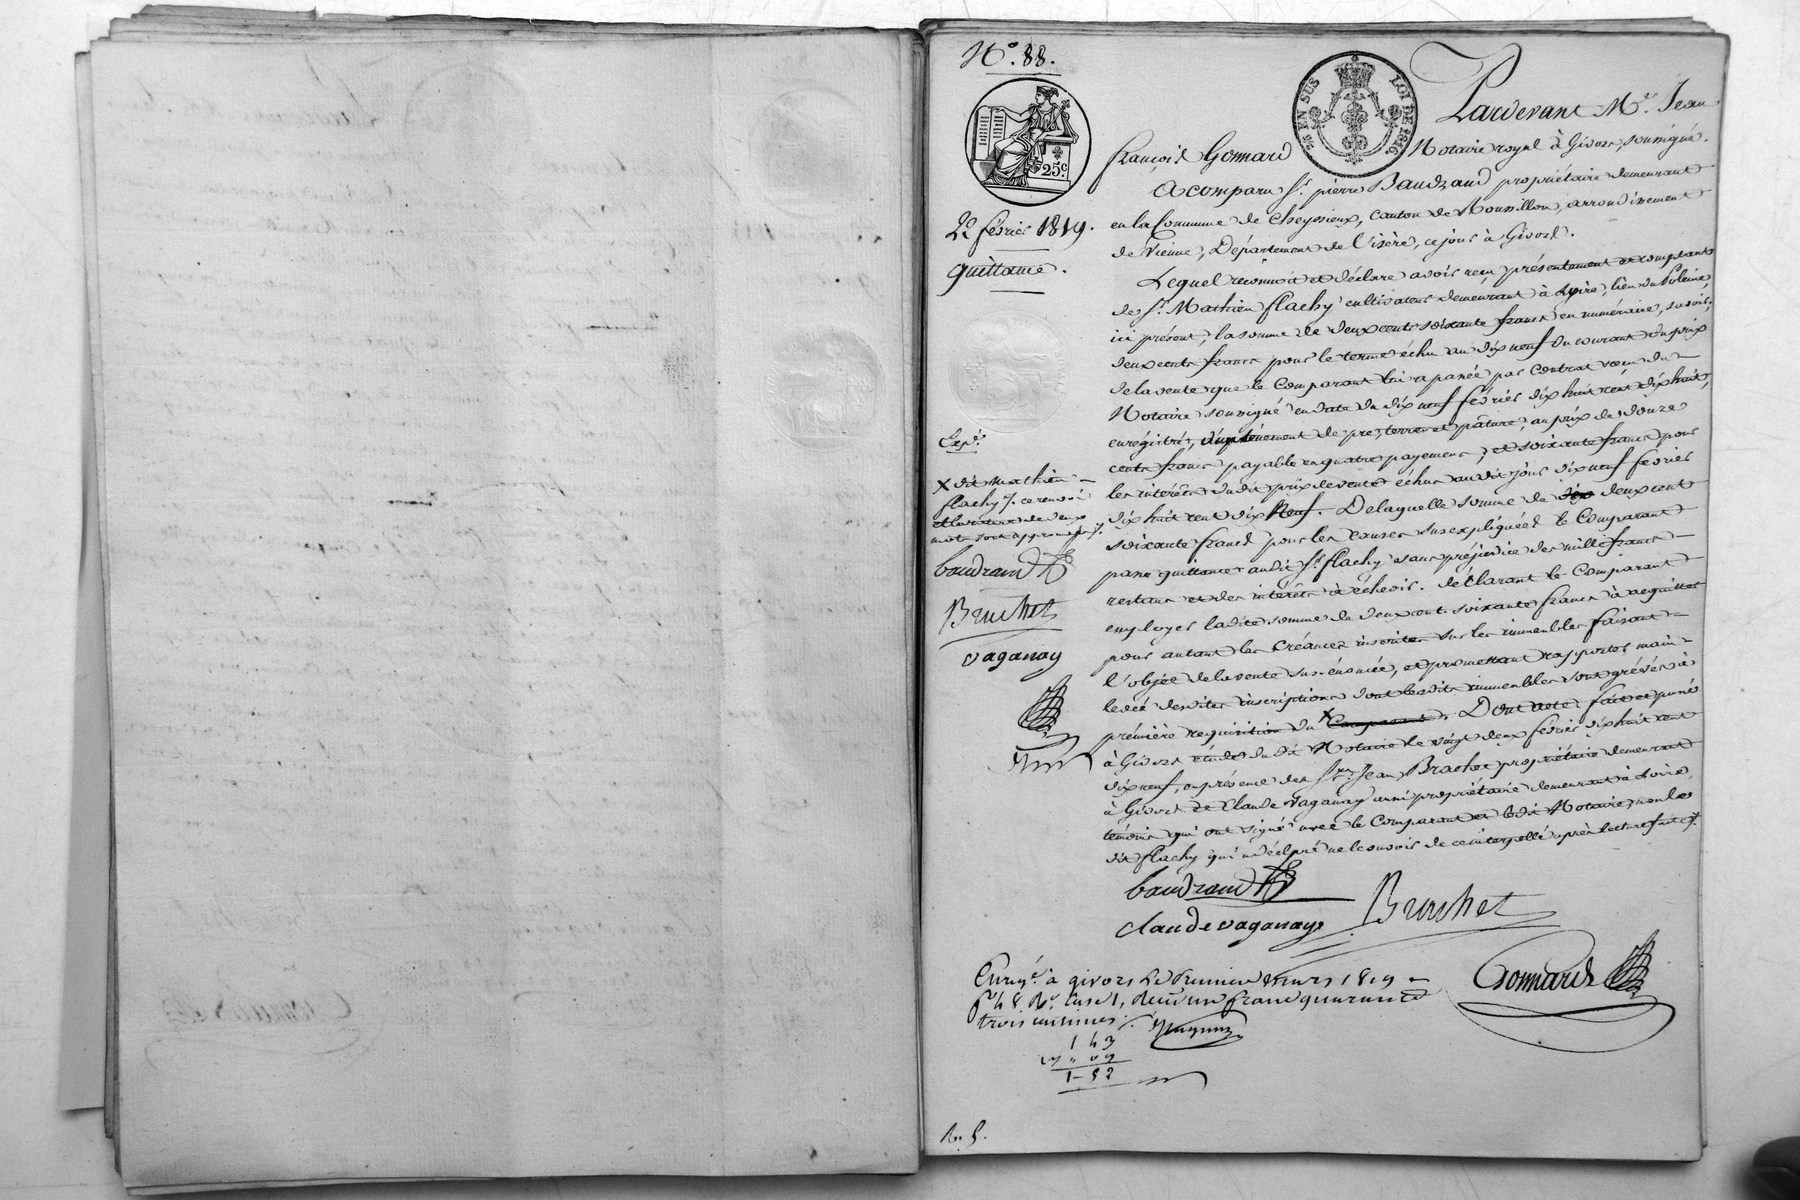 N.° 88.
EN SUS
LOI DE 1816
25.c
22 février 1819.
quittance.
Pardevant M.e Jean
françois Gonnard Notaire royal à Givors, soussigné.
A comparu S.r pierre Baudrand propriétaire demeurant
en la Commune de Cheyssieux, canton de Roussillon, arrondissement
de Vienne, Département de l'isère, ce jour à Givors.
Lequel reconnoit et déclare avoir reçu présentement et comptant
de S.r Mathieu flachy cultivateur demeurant à Loire, lieu du
ici présent, la somme de deux cents soixante francs en numéraire, savoir;
deux cents francs pour le terme échu au dix neuf du courant du prix
de la vente que le Comparant lui a passée par contrat reçu du
Notaire soussigné en date du dix neuf février dix huit cent dix huit,
enregistré, d'un ténement de pré, terre et pâture, au prix de douze
cents francs payable en quatre payemens, et soixante francs pour
les intérêts dudit prix de vente échus audit jour dix neuf février
dix huit cent dix Neuf. De laquelle somme de deux cent
soixante francs pour les causes sus expliquées le Comparant
passe quittance audit S.r flachy sans préjudice des mille francs
restans et des intérêts à échoir. déclarant le Comparant
employer ladite somme de deux cent soixante francs à acquitter
pour autant les créances inscrites sur les immeubles faisant
l'objet de la vente sus énoncée, et promettant rapporter main
levée desdites inscriptions dont lesdits immeubles sont grévés à
première requisition du X Comparant. Dont acte fait et passé
à Givors étude dudit Notaire le vingt deux février dix huit cent
dix neuf, en présence des S.rs Jean Brachet propriétaire demeurant
à Givors et Claude Vaganay aussi propriétaire demeurant à Loire,
témoins qui ont signé avec le Comparant et ledit Notaire, non le
dit flachy qui a déclaré ne le savoir de ce interpellé après lecture faite
Exp.é
X dit Mathieu
flachy ce renvoi
et la rature de deux
mots sont approuvés
baudrand
Bruchet
vaganay
baudrand
Bruchet
claude vaganay
Gonnard
Enreg.é à givors le premier mars 1819
f.o 48 R.o Case 1, reçu un franc quarante
trois centimes.
1 43
09
1 - 52